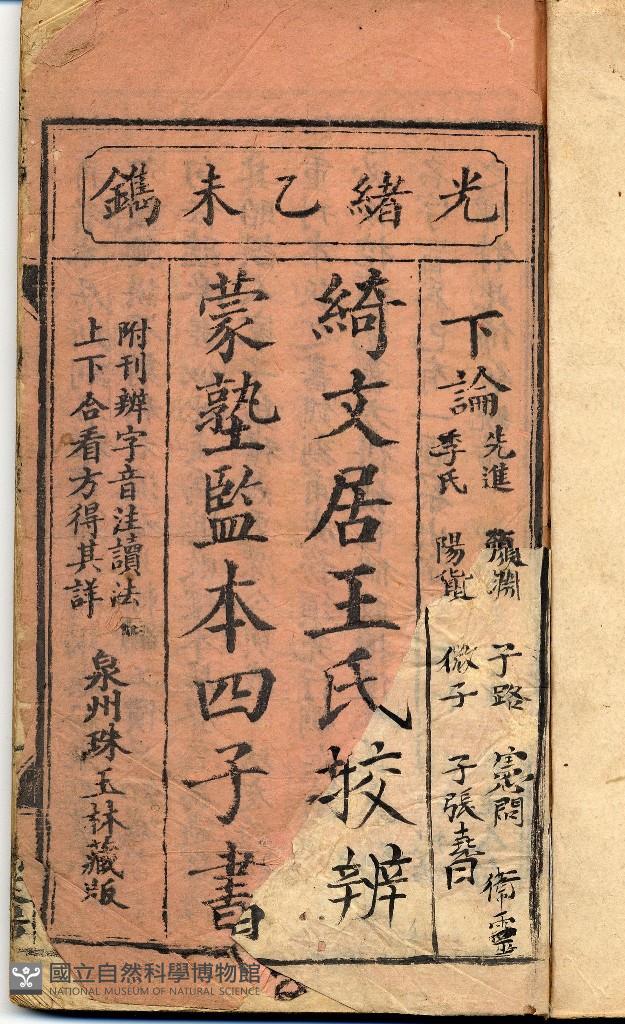 光緒乙未鐫
下論
先進 顏淵 子路 憲問 衛靈
季氏 陽貨 微子 子張 堯曰
綺文居王氏挍辨
蒙塾監本四子書
附刊辨字音注讀法
上下合看方得其詳
泉州珠玉林藏版
國立自然科學博物館
NATIONAL MUSEUM OF NATURAL SCIENCE